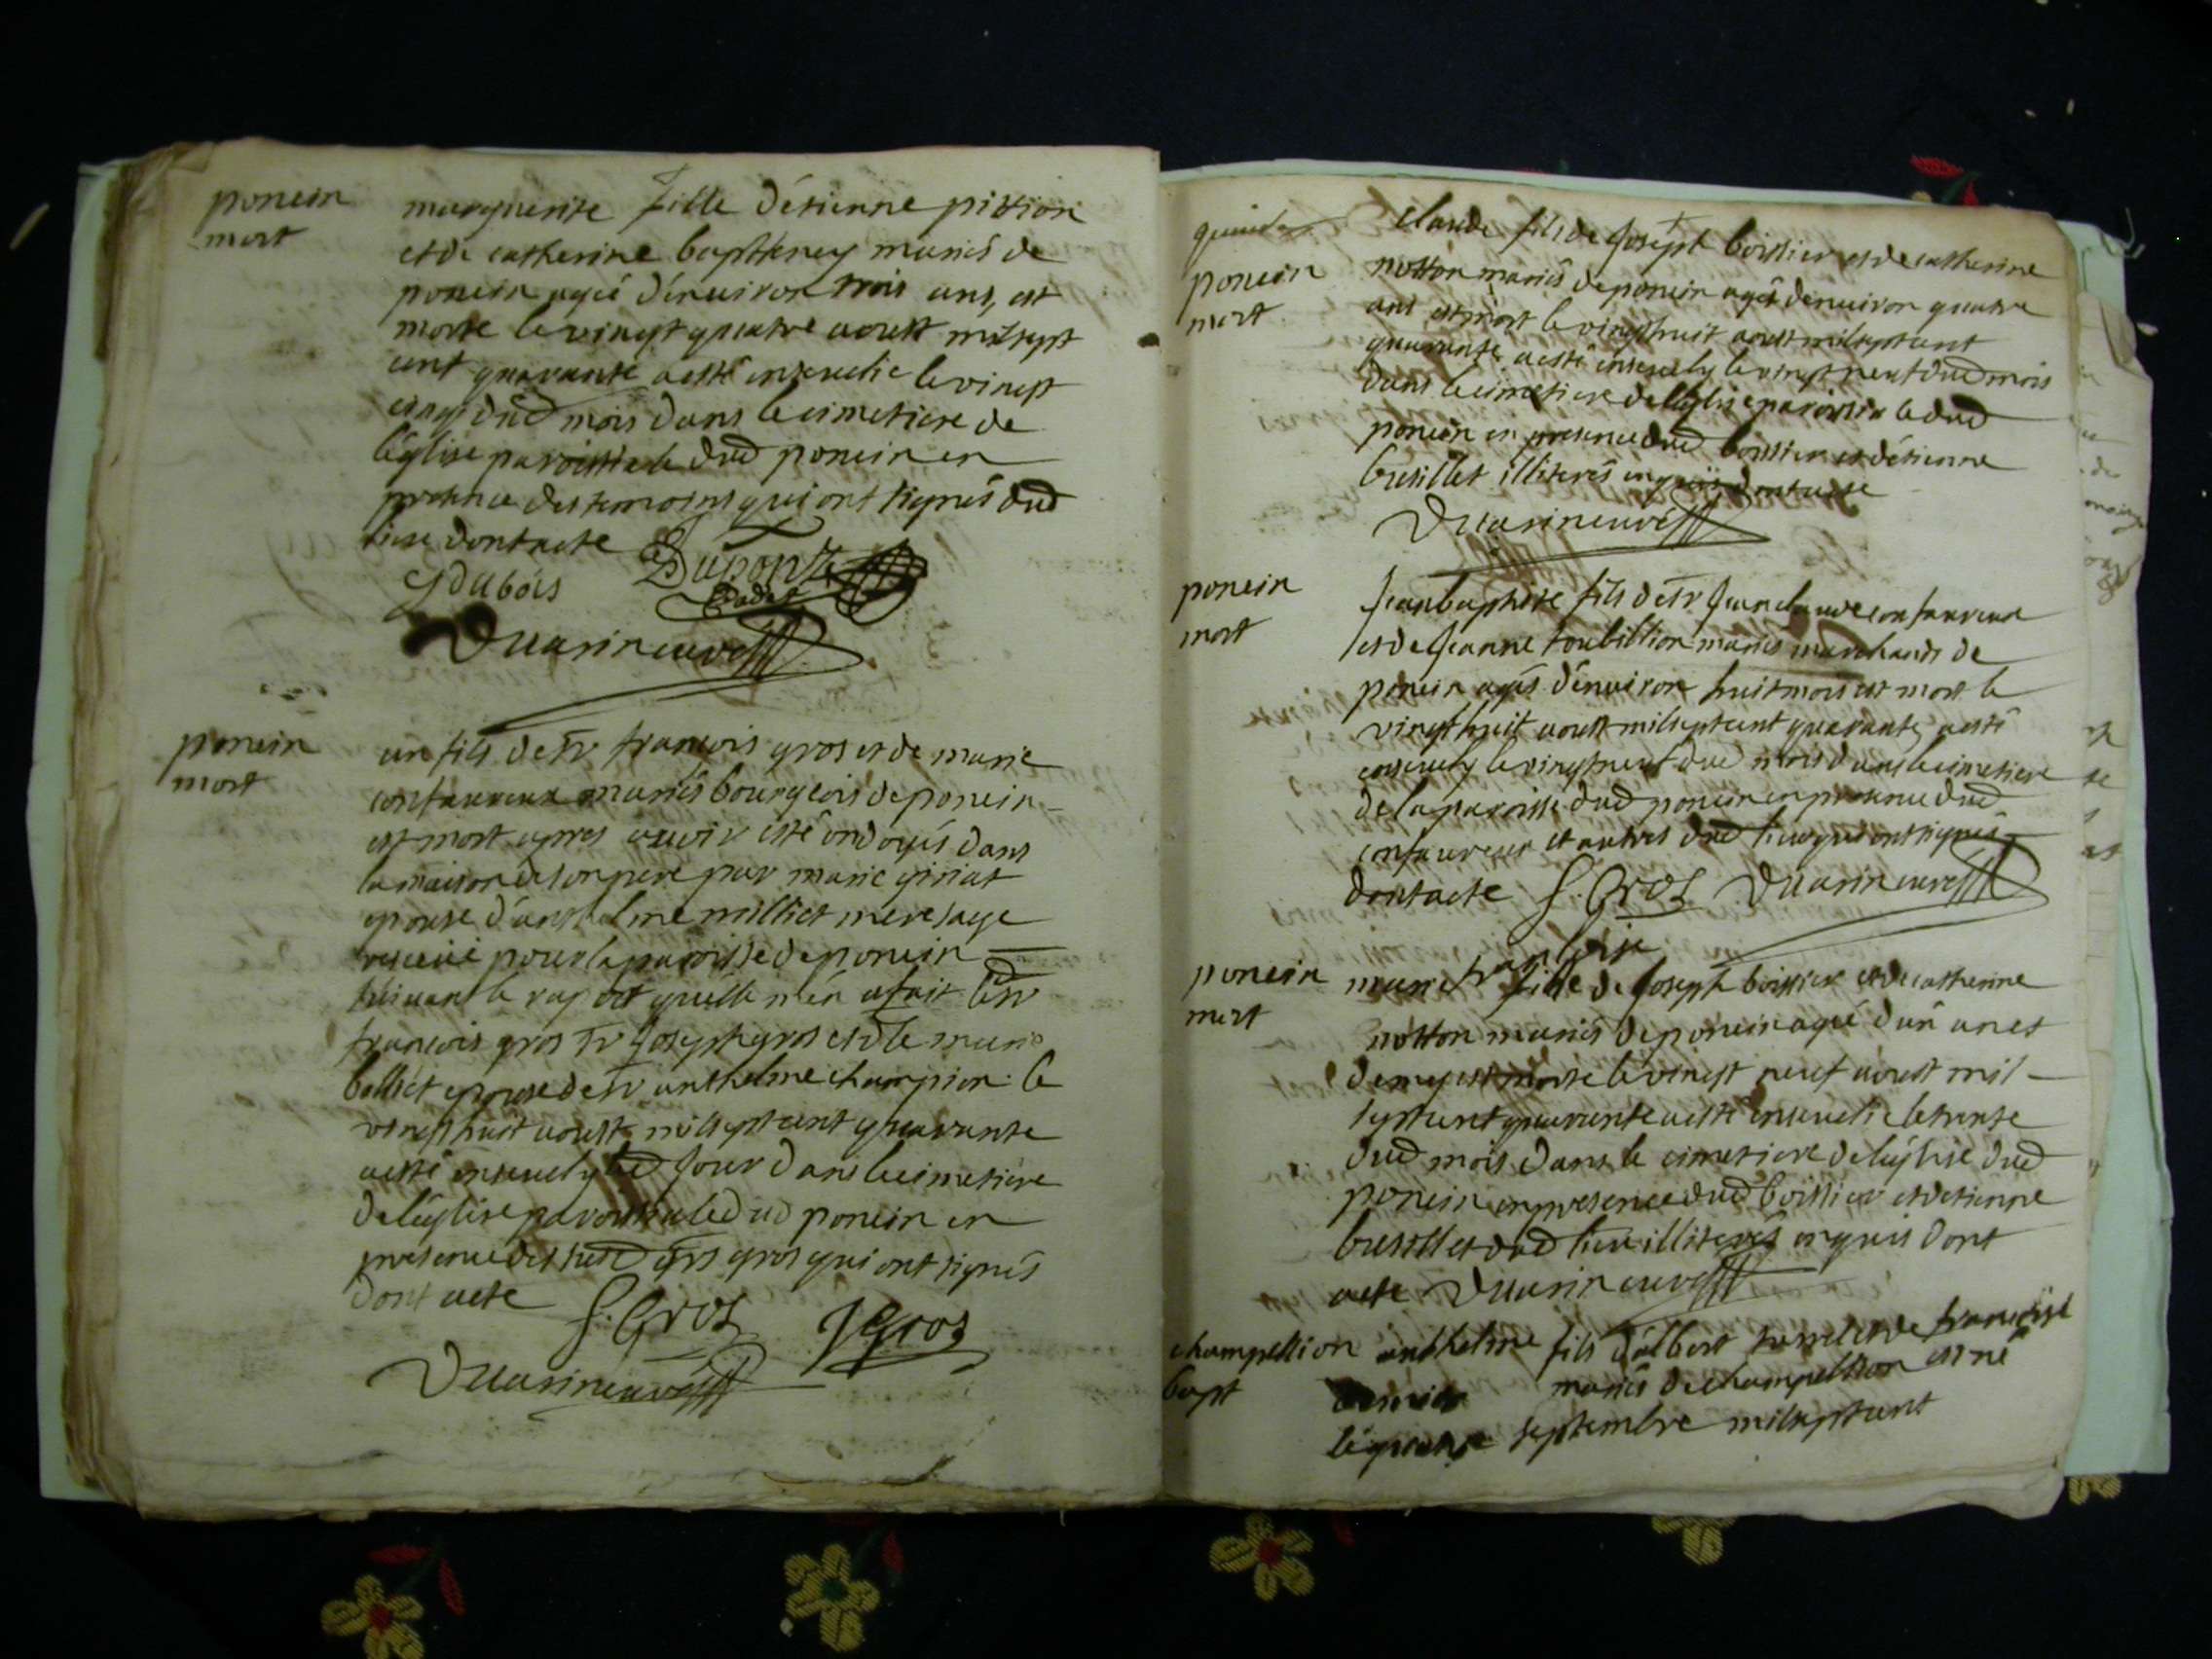 poncin
mort
marguerite fille d'étienne pittion
et de catherine bapsterey mariés de
poncin agée d'environ trois ans, est
morte le vingt quatre aoust mil sept
cent quarante a esté ensevelie le vingt
cinq dud mois dans le cimetiere de
l'église paroissiale dud poncin en
presence des temoins qui ont signés dud
lieu dont acte
Dupont
cadet
Jdubois
poncin
mort
un fils de Sr francois gros et de marie
confavreux mariés bourgeois de poncin
est mort apres avoir esté ondoyés dans
la maison de son pere par marie giriat
epouse d'anthelme milliet mere sage
receüe pour la paroisse de poncin
suivant le raport qu'elle m'en a fait led Sr
francois gros Sr Joseph gros et dle marie
belliet epouse de Sr anthelme champion le
vingt huit aoust mil sept cent quarante
a esté ensevely led jour dans le cimetiere
de l'église paroissiale dud poncin en
presence des susd Srs gros qui ont signés
dont acte
f. Gros
JGros
poncin
mort
claude fils de Joseph boissier et de catherine
notton mariés de poncin agés d'environ quatre
ans est mort le vingt huit aoust mil sept cent
quarante a esté ensevely le vingt neuf dud mois
dans le cimetiere de l'église paroissiale dud
poncin en presence dud boissier et d'étienne
busillet illiterés enquis dont acte
poncin
mort
Jean baptiste fils de Sr Jean claude confavreux
et de Jeanne toubillion mariés marchands de
poncin agés d'environ huit mois est mort le
vingt huit aoust mil sept cent quarante, a esté
ensevely le vingt neuf dud mois dans le cimetiere
de la paroisse dud poncin en presence dud
confavreux et autres dud lieu qui ont signés
dont acte f. Gros
poncin
mort
francoise
marie fille de Joseph boissier et de catherine
notton mariés de poncin agée d'un an et
demy est morte le vingt neuf aoust mil
sept cent quarante a esté ensevelie le trente
dud mois dans le cimetiere de l'église dud
poncin en presence dud boissier et d'etienne
busillet dud lieu illiterés enquis dont
acte
champellion
bapt
anthelme fils d'albert et de francoise
mariés de champellion est né
le quatre septembre mil sept cent